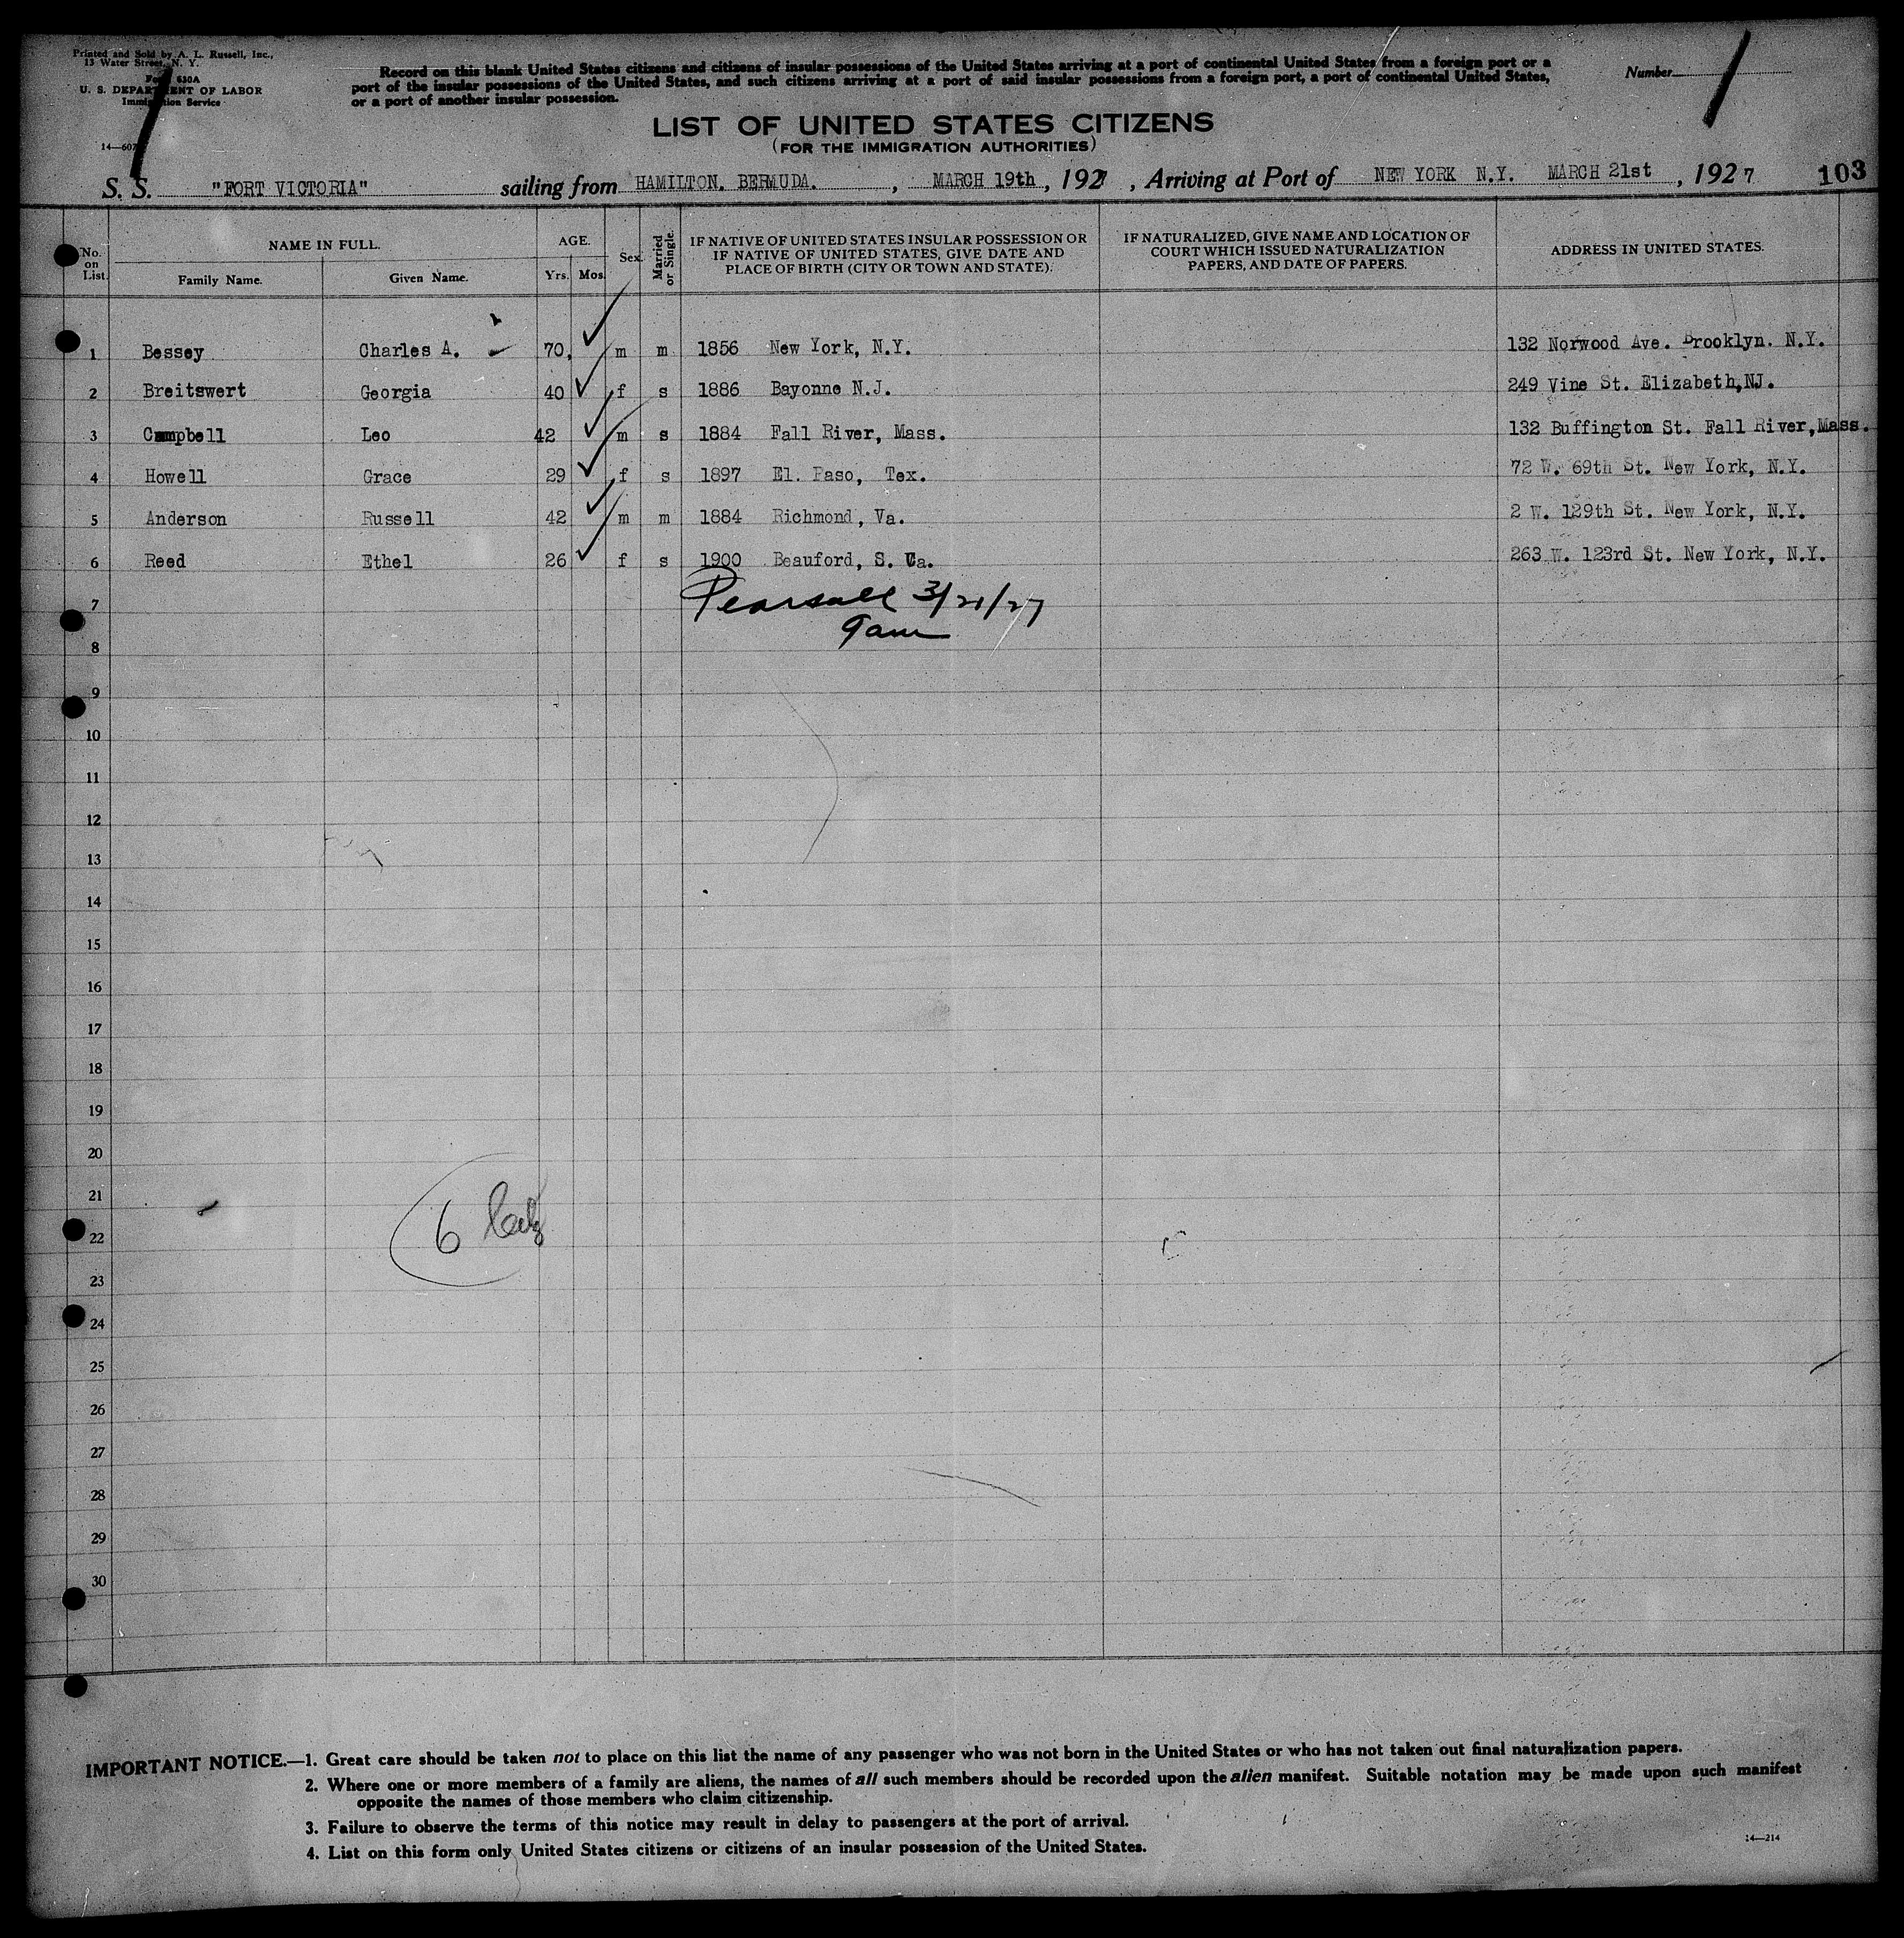 Printed and Sold by A. L. Russell, Inc.,
13 Water Street, N. Y.
Form 630A
U. S. DEPARTMENT OF LABOR
Immigration Service
14—607
Record on this blank United States citizens and citizens of insular possessions of the United States arriving at a port of continental United States from a foreign port or a
port of the insular possessions of the United States, and such citizens arriving at a port of said insular possessions from a foreign port, a port of continental United States,
or a port of another insular possession.
Number 1
LIST OF UNITED STATES CITIZENS
(FOR THE IMMIGRATION AUTHORITIES)
S. S. "FORT VICTORIA" sailing from HAMILTON. BERMUDA. , MARCH 19th , 1927 , Arriving at Port of NEW YORK N.Y. MARCH 21st , 1927 103
No. on List. NAME IN FULL. Family Name. Given Name. AGE. Yrs. Mos. Sex. Married or Single. IF NATIVE OF UNITED STATES INSULAR POSSESSION OR IF NATIVE OF UNITED STATES, GIVE DATE AND PLACE OF BIRTH (CITY OR TOWN AND STATE). IF NATURALIZED, GIVE NAME AND LOCATION OF COURT WHICH ISSUED NATURALIZATION PAPERS, AND DATE OF PAPERS. ADDRESS IN UNITED STATES.
1 Bessey Charles A. 70, m m 1856 New York, N.Y. 132 Norwood Ave. Brooklyn. N.Y.
2 Breitswert Georgia 40 f s 1886 Bayonne N.J. 249 Vine St. Elizabeth,NJ.
3 Campbell Leo 42 m s 1884 Fall River, Mass. 132 Buffington St. Fall River,Mass.
4 Howell Grace 29 f s 1897 El. Paso, Tex. 72 W. 69th St. New York, N.Y.
5 Anderson Russell 42 m m 1884 Richmond, Va. 2 W. 129th St. New York, N.Y.
6 Reed Ethel 26 f s 1900 Beauford, S. Ca. 263 W. 123rd St. New York, N.Y.
7 Pearsall 3/21/27
9 am
8
9
10
11
12
13
14
15
16
17
18
19
20
21
22 6
23
24
25
26
27
28
29
30
IMPORTANT NOTICE.—1. Great care should be taken not to place on this list the name of any passenger who was not born in the United States or who has not taken out final naturalization papers.
2. Where one or more members of a family are aliens, the names of all such members should be recorded upon the alien manifest. Suitable notation may be made upon such manifest
opposite the names of those members who claim citizenship.
3. Failure to observe the terms of this notice may result in delay to passengers at the port of arrival.
4. List on this form only United States citizens or citizens of an insular possession of the United States.
14—214